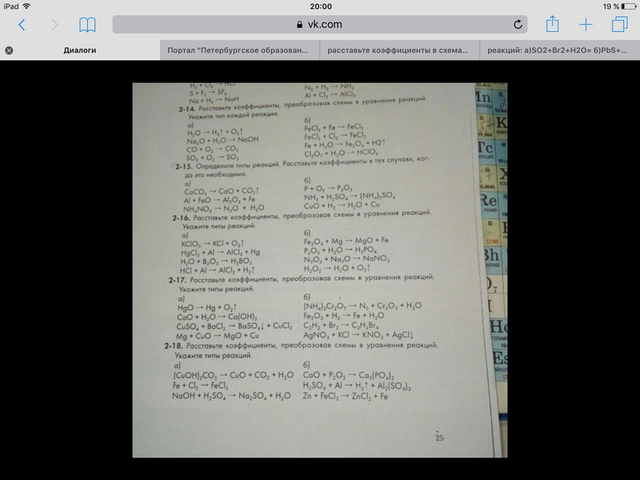 iPad
20:00
19 %
vk.com
Диалоги
Портал "Петербургское образован...
расставьте коэффициенты в схема...
реакций: а)SO2+Br2+H2O= б)PbS+...
S + F₂ → SF₆
Na + H₂ → NaH
N₂ + H₂ → NH₃
Al + Cl₂ → AlCl₃
2-14. Расставьте коэффициенты, преобразовав схемы в уравнения реакций.
Укажите тип каждой реакции.
а)
H₂O → H₂↑ + O₂↑
Na₂O + H₂O → NaOH
CO + O₂ → CO₂
SO₂ + O₂ → SO₃
б)
FeCl₃ + Fe → FeCl₂
FeCl₂ + Cl₂ → FeCl₃
Fe + H₂O → Fe₃O₄ + H2↑
Cl₂O₇ + H₂O → HClO₄
2-15. Определите типы реакций. Расставьте коэффициенты в тех случаях, ког-
да это необходимо.
а)
CaCO₃ → CaO + CO₂↑
Al + FeO → Al₂O₃ + Fe
NH₄NO₃ → N₂O + H₂O
б)
P + O₂ → P₂O₅
NH₃ + H₂SO₄ → (NH₄)₂SO₄
CuO + H₂ → H₂O + Cu
2-16. Расставьте коэффициенты, преобразовав схемы в уравнения реакций.
Укажите типы реакций.
а)
KClO₃ → KCl + O₂↑
HgCl₂ + Al → AlCl₃ + Hg
H₂O + B₂O₃ → H₃BO₃
HCl + Al → AlCl₃ + H₂↑
б)
Fe₂O₃ + Mg → MgO + Fe
P₂O₅ + H₂O → H₃PO₄
N₂O₅ + Na₂O → NaNO₃
H₂O₂ → H₂O + O₂↑
2-17. Расставьте коэффициенты, преобразовав схемы в уравнения реакций.
Укажите типы реакций.
а)
HgO → Hg + O₂↑
CaO + H₂O → Ca(OH)₂
CuSO₄ + BaCl₂ → BaSO₄↓ + CuCl₂
Mg + CuO → MgO + Cu
б)
(NH₄)₂Cr₂O₇ → N₂ + Cr₂O₃ + H₂O
Fe₂O₃ + H₂ → Fe + H₂O
AgNO₃ + KCl → KNO₃ + AgCl↓
2-18. Расставьте коэффициенты, преобразовав схемы в уравнения реакций.
Укажите типы реакций.
а)
(CuOH)₂CO₃ → CuO + CO₂ + H₂O
Fe + Cl₂ → FeCl₃
NaOH + H₂SO₄ → Na₂SO₄ + H₂O
б)
CaO + P₂O₅ → Ca₃(PO₄)₂
H₂SO₄ + Al → H₂↑ + Al₂(SO₄)₃
Zn + FeCl₃ → ZnCl₂ + Fe
25
Tc
Re